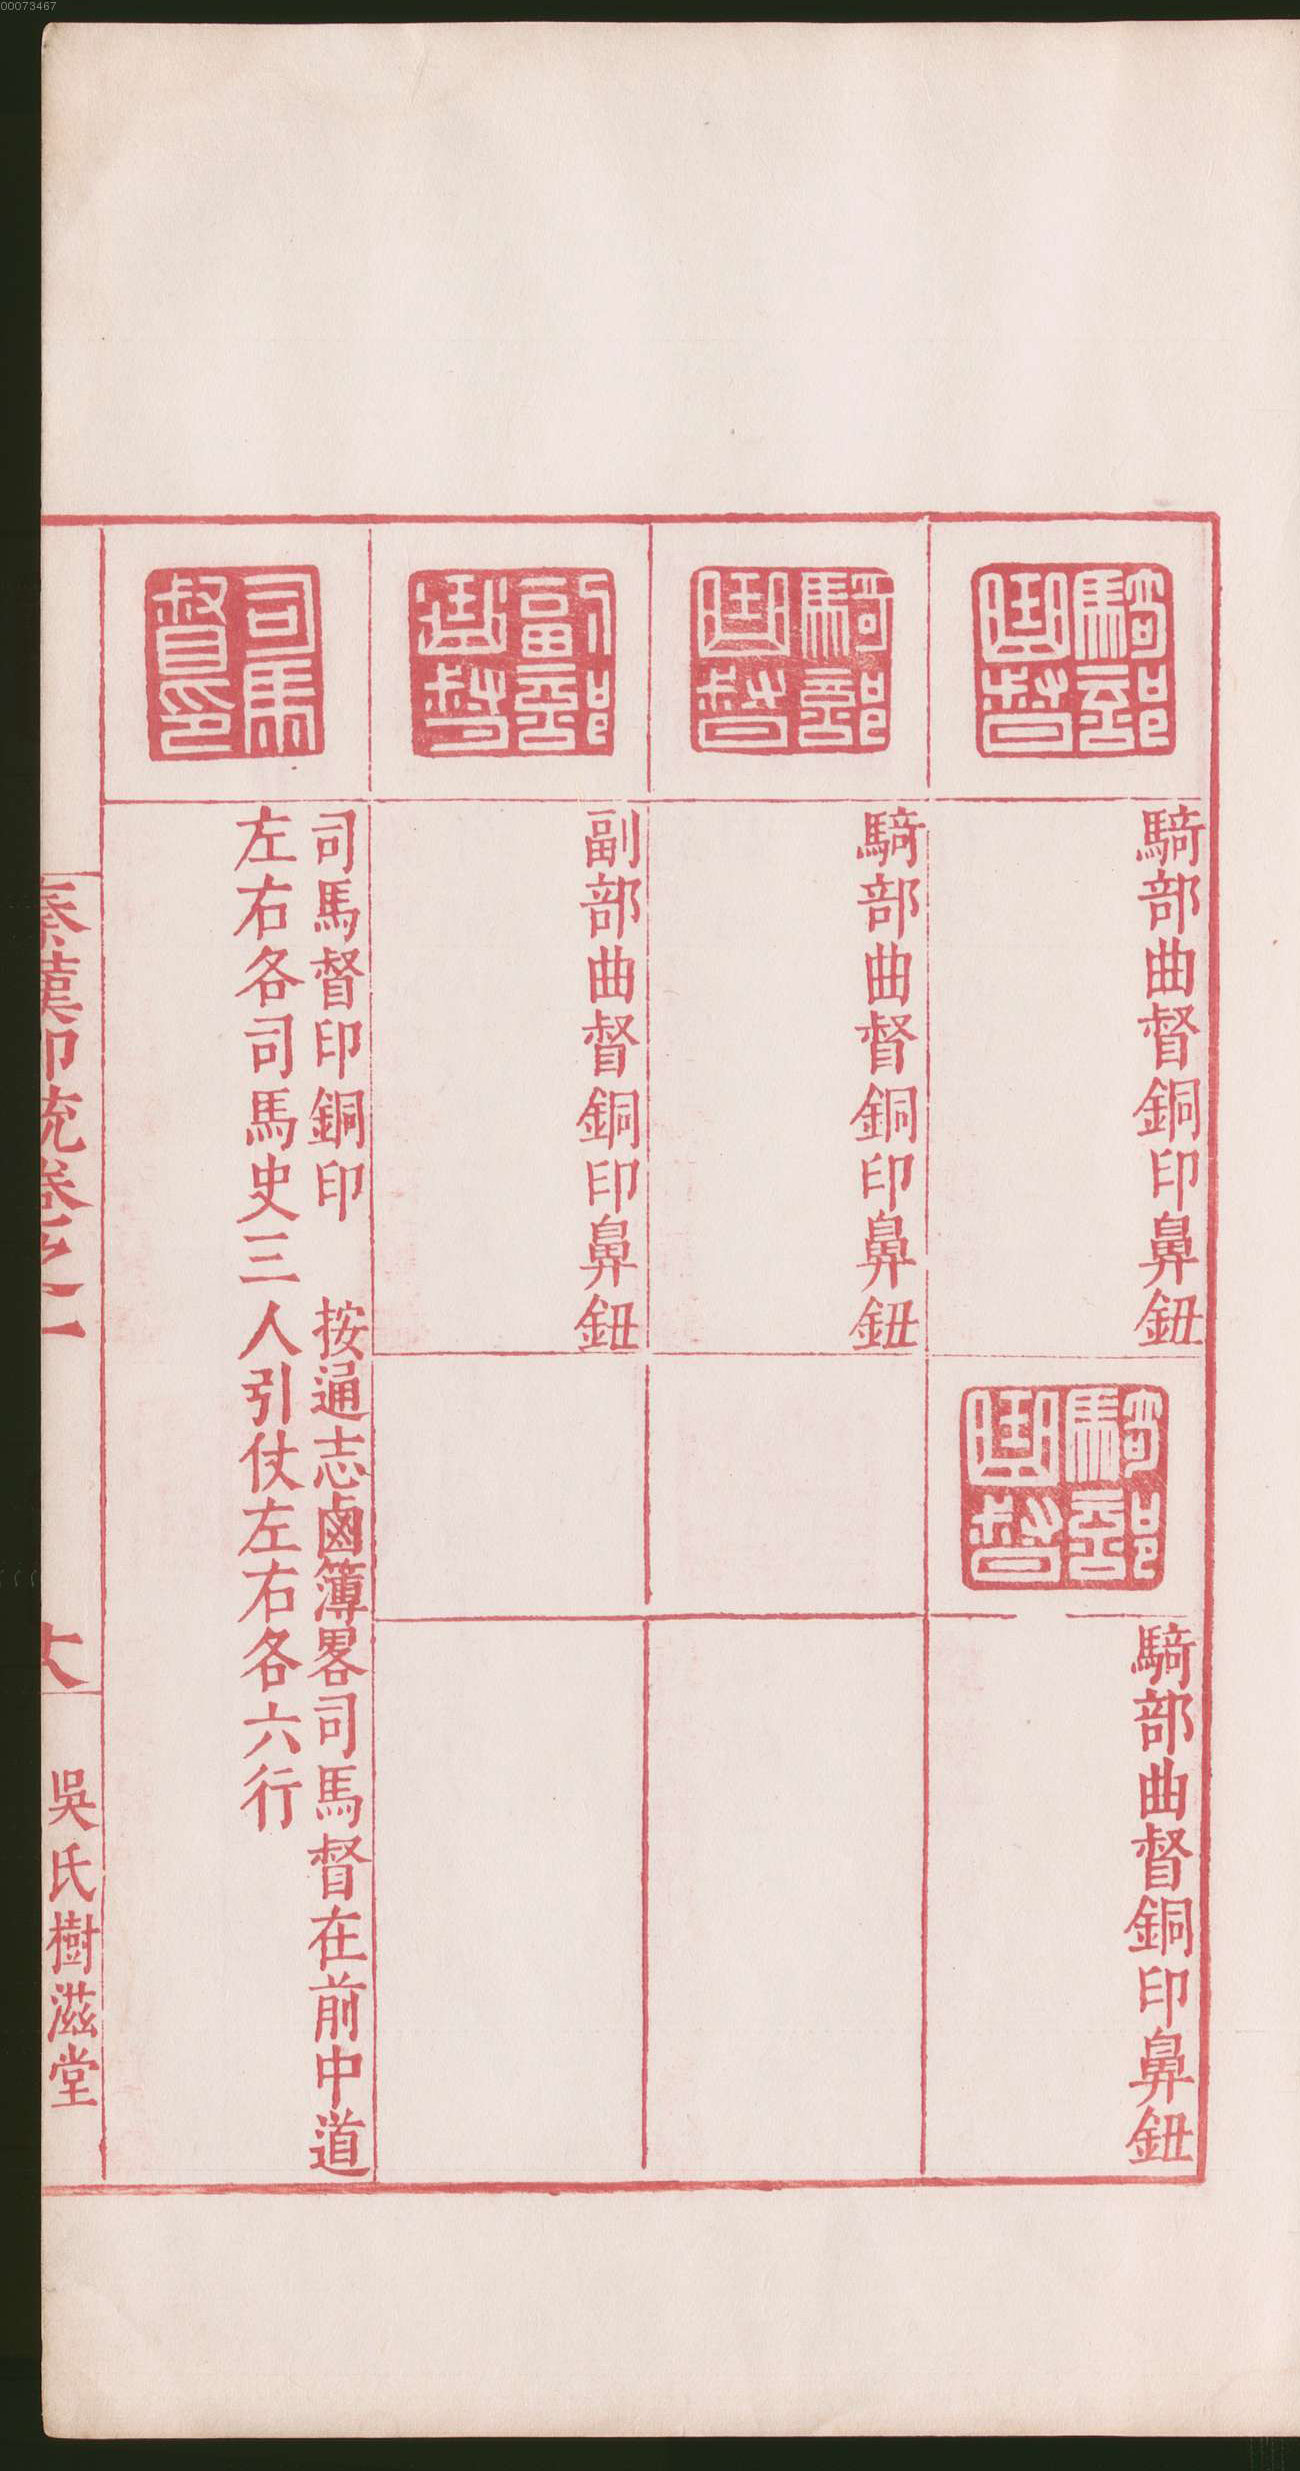 00073467
騎部曲督
騎部曲督銅印鼻鈕
騎部曲督
騎部曲督銅印鼻鈕
騎部曲督
騎部曲督銅印鼻鈕
副部曲督
副部曲督銅印鼻鈕
司馬督印
司馬督印銅印　按通志鹵簿畧司馬督在前中道
左右各司馬史三人引仗左右各六行
秦漢印統卷之一
吳氏樹滋堂